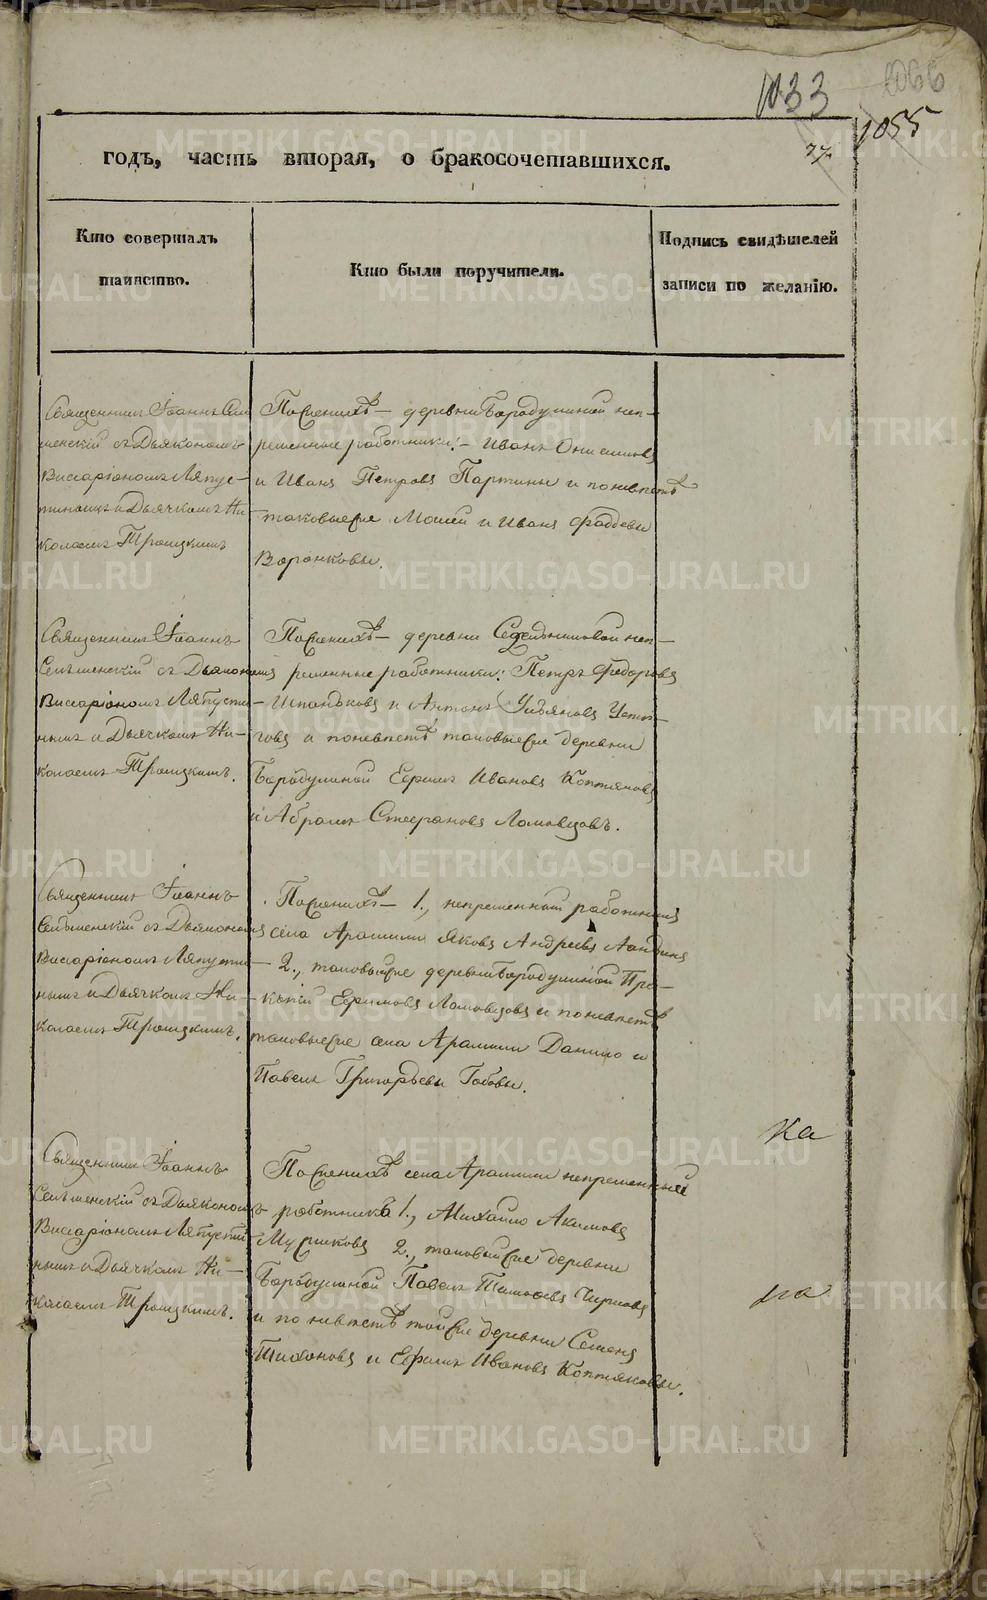 1033
1066
1055
годъ, часть вторая, о бракосочетавшихся.
Кто совершалъ
таинство.
Кто были поручители.
Подпись свидѣтелей
записи по желанію.
Священникъ Іоаннъ Сел
менскій съ Дьякономъ
Виссаріономъ Ляпус-
тинымъ и Дьячкомъ Ни-
колаемъ Троицкимъ
По женихѣ — деревни Бородулиной неп-
ременные работники: Иванъ Онисимовъ
и Иванъ Петровъ Партины и по невѣстѣ
таковые же Моисей и Иванъ Фаддеевы
Воронковы.
Священникъ Іоаннъ
Селменскій съ Дьякономъ
Виссаріономъ Ляпусти-
нымъ и Дьячкомъ Ни-
колаемъ Троицкимъ.
По женихѣ — деревни Седельниковой неп-
ременные работники: Петръ Федоровъ
и Антонъ Ульяновъ
и по невѣстѣ таковые же деревни
Бородулиной Ефимъ Ивановъ Коптяковъ
и Абрамъ Стефановъ Ломовцовъ.
Священникъ Іоаннъ
Селменскій съ Дьякономъ
Виссаріономъ Ляпусти-
нымъ и Дьячкомъ Ни-
колаемъ Троицкимъ.
По женихѣ — 1., непременный работникъ
села Арамили Яковъ Андреевъ
2., таковый же деревни Бородулиной Про-
копій Ефимовъ Ломовцовъ и по невѣстѣ
таковые же села Арамили Данило и
Павелъ Григорьевы
Священникъ Іоаннъ
Селменскій съ Дьякономъ
Виссаріономъ Ляпусти-
нымъ и Дьячкомъ Ни-
колаемъ Троицкимъ.
По женихѣ села Арамили непременный
работникъ 1., Михайло Акимовъ
2., таковый же деревни
Бородулиной Павелъ
и по невѣстѣ той же деревни Семенъ
Тихоновъ и Ефимъ Ивановъ Коптяковы.
Ка
METRIKI.GASO-URAL.RU